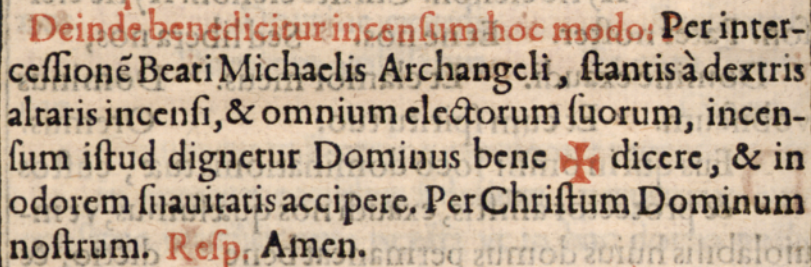 Deinde benedicitur incenſum hoc modo: Per inter-
ceſſionẽ Beati Michaelis Archangeli, ſtantis à dextris
altaris incenſi, & omnium electorum ſuorum, incen-
ſum iſtud dignetur Dominus bene ✠ dicere, & in
odorem ſuauitatis accipere. Per Chriſtum Dominum
noſtrum. Reſp. Amen.